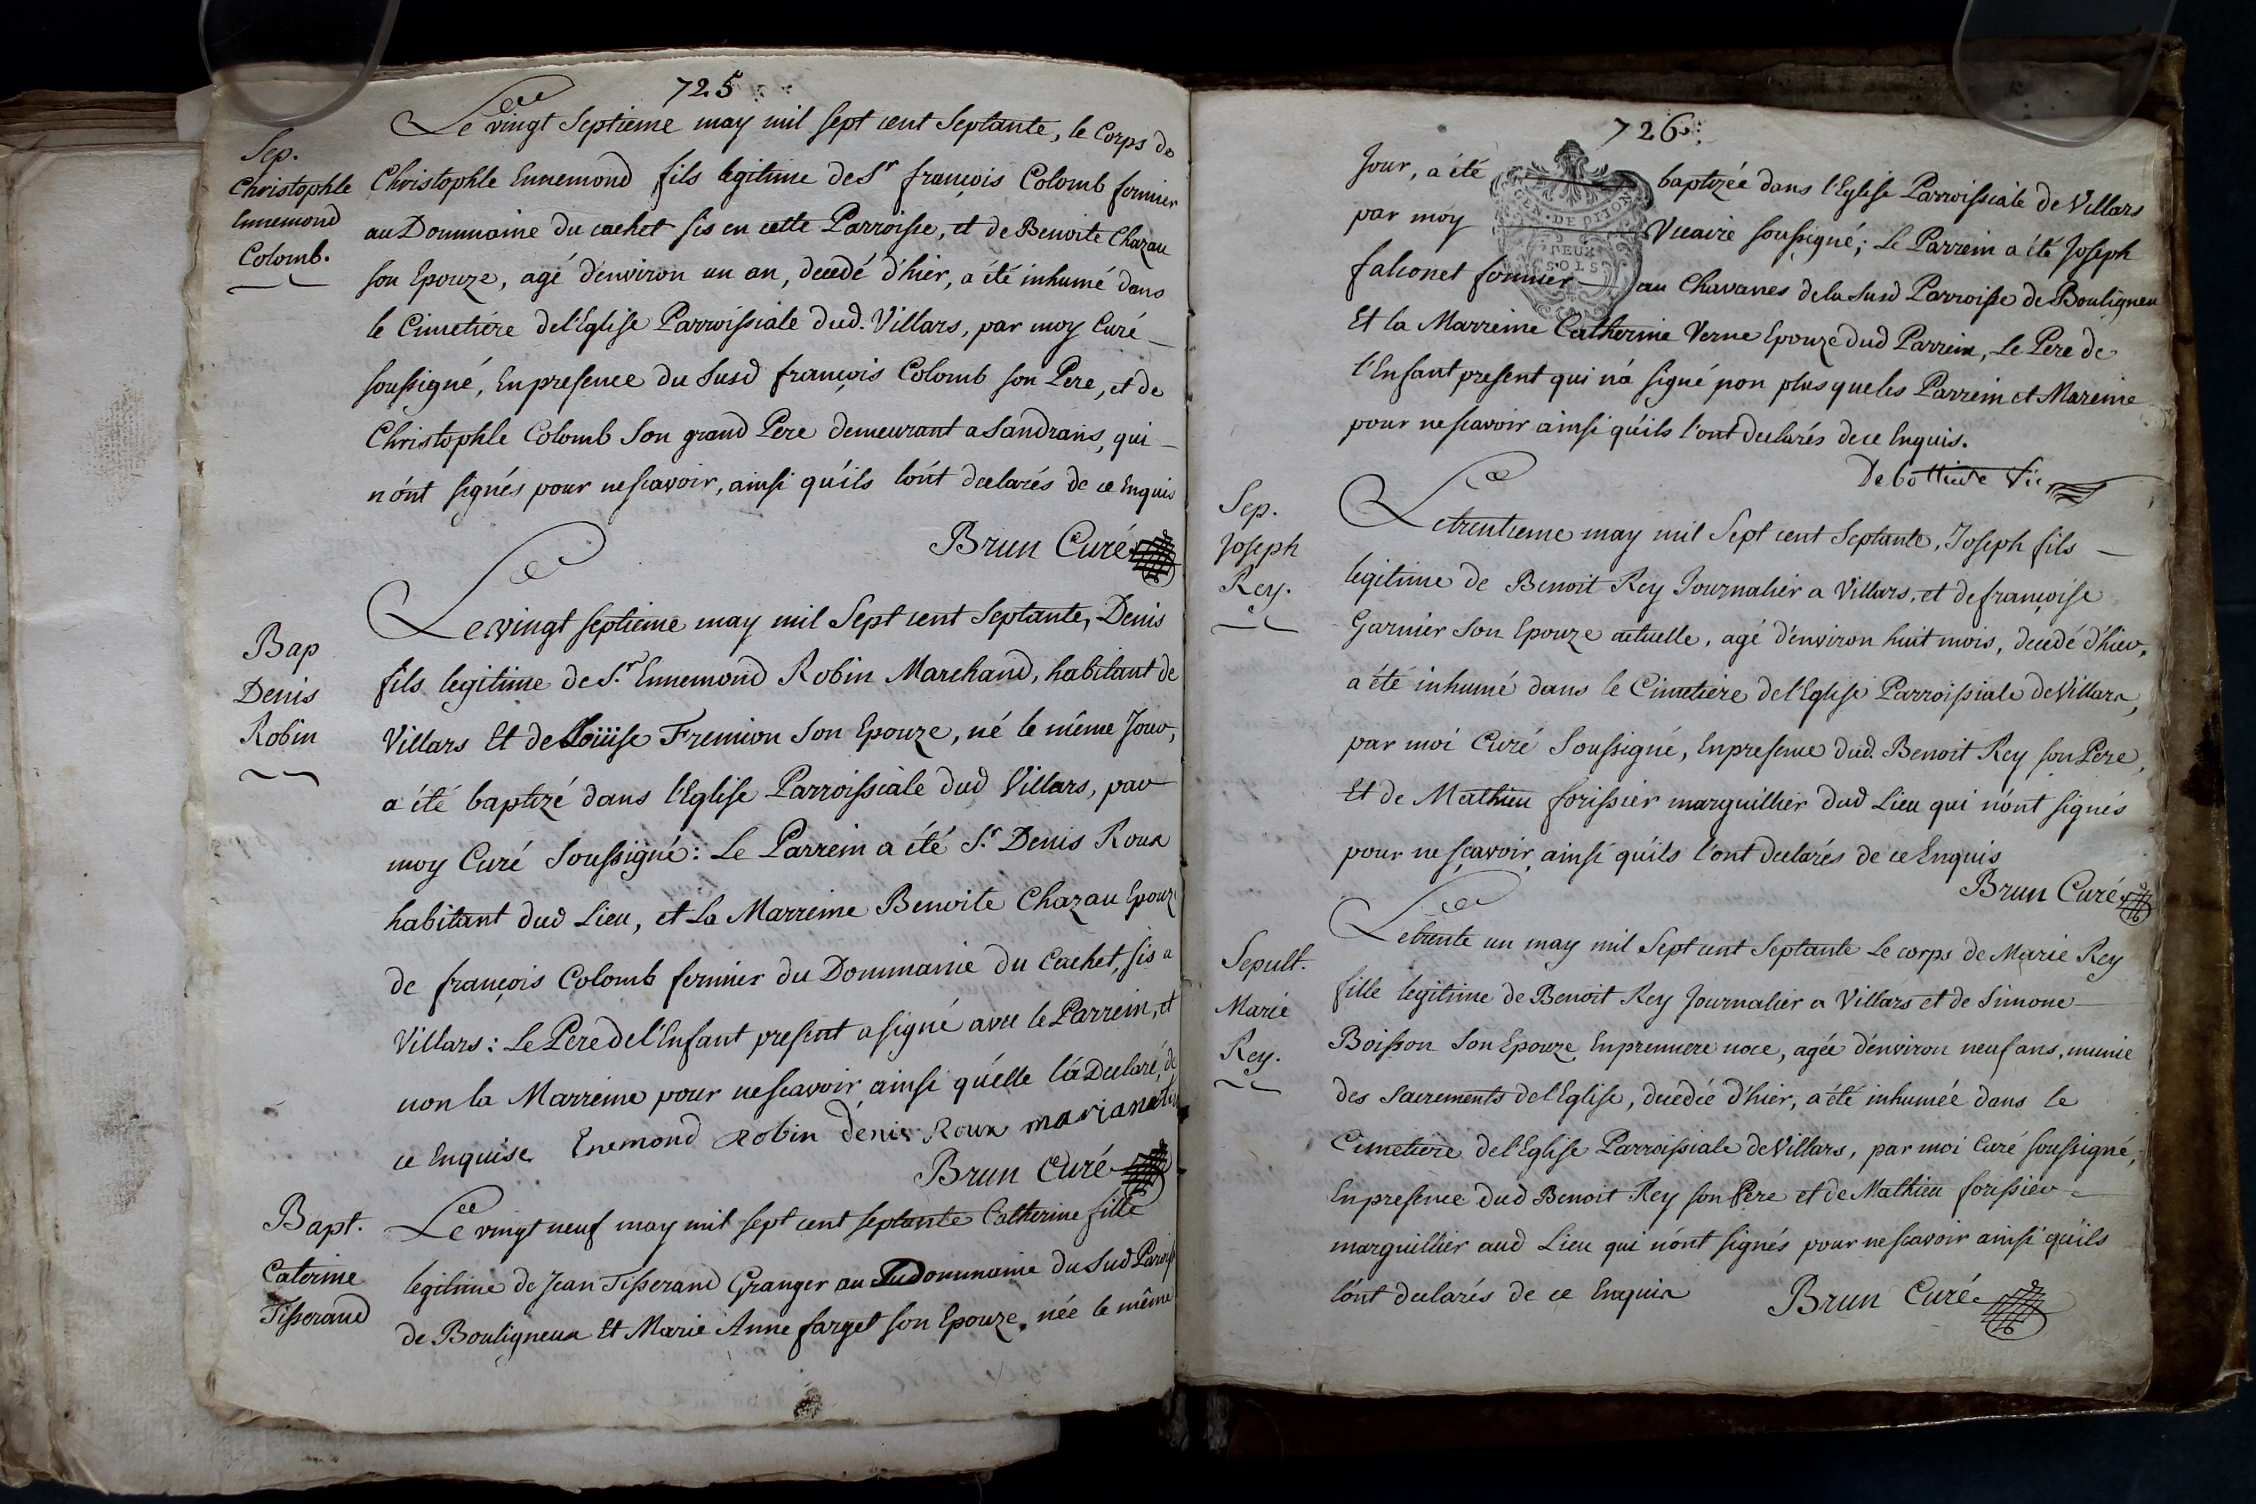 725
Sep.
Christophle
Ennemond
Colomb.
Le vingt Septieme may mil sept cent Septante, le Corps de
Christophle Ennemond fils legitime de Sr françois Colomb fermier
au Dommaine du cachet sis en cette Parroisse, et de Benoite Chazau
son Epouze, agé d'environ un an, decedé d'hier, a été inhumé dans
le Cimetiére de l'Eglise Parroissiale dud. Villars, par moy Curé
soussigné, En presence du Susd françois Colomb son Pere, et de
Christophle Colomb Son grand Pere demeurant a Sandrans, qui
n'ont signés pour ne scavoir, ainsi qu'ils l'ont declarés de ce Enquis
Brun Curé
Bap
Denis
Robin
Le vingt septieme may mil Sept cent Septante, Denis
fils legitime de Sr. Ennemond Robin Marchand, habitant de
Villars Et de Loüise Fremion Son Epouze, né le même Jour,
a été baptizé dans l'Eglise Parroissiale dud Villars, par
moy Curé Soussigné : Le Parrein a été Sr. Denis Roux
habitant dud Lieu, et La Marreine Benoite Chazau Epouze
de françois Colomb fermier du Dommaine du Cachet, sis a
Villars : Le Pere de l'Enfant present a signé avec le Parrein, et
non la Marreine pour ne scavoir ainsi qu'elle l'a Declaré, de
ce Enquise Enemond Robin denis Roux
Brun Curé
Bapt.
Caterine
Tisserand
Le vingt neuf may mil sept cent septante Catherine fille
legitime de Jean Tisserand Granger au dommaine du Sud Parroisse
de Bouligneux Et Marie Anne farget son Epouze, née le même
726
GEN. DE DIJON
DEUX
SOLS
Jour, a été baptizée dans l'Eglise Parroissiale de Villars
par moy Vicaire soussigné ; Le Parrein a été Joseph
falconet fermier au Chavanes de la Susd Parroisse de Bouligneu
Et la Marreine Catherine Verne Epouze dud Parrein, Le Pere de
l'Enfant present qui n'a signé non plus que les Parrein et Mareine
pour ne scavoir ainsi qu'ils l'ont declarés de ce Enquis.
Sep.
Joseph
Rey.
Le trentieme may mil Sept cent Septante, Joseph fils
legitime de Benoit Rey Journalier a Villars, et de françoise
Garnier Son Epouze actuelle, agé d'environ huit mois, decedé d'hier,
a été inhumé dans le Cimetiere de l'Eglise Parroissiale de Villars,
par moi Curé Soussigné, En presence dud. Benoit Rey son Pere,
Et de Mathieu forissier marguillier dud Lieu qui n'ont signés
pour ne sçavoir, ainsi qu'ils l'ont declarés de ce Enquis
Brun Curé
Sepult.
Marie
Rey.
Le trente un may mil Sept cent Septante Le corps de Marie Rey
fille legitime de Benoit Rey Journalier a Villars et de Simone
Boisson Son Epouze En premiere noce, agée d'environ neuf ans, munie
des Sacrements de l'Eglise, decedée d'hier, a été inhumée dans le
Cimetiere de l'Eglise Parroissiale de Villars, par moi Curé soussigné,
En presence dud Benoit Rey son Pere et de Mathieu forissier
marguillier aud Lieu qui n'ont signés pour ne scavoir ainsi qu'ils
l'ont declarés de ce Enquis
Brun Curé